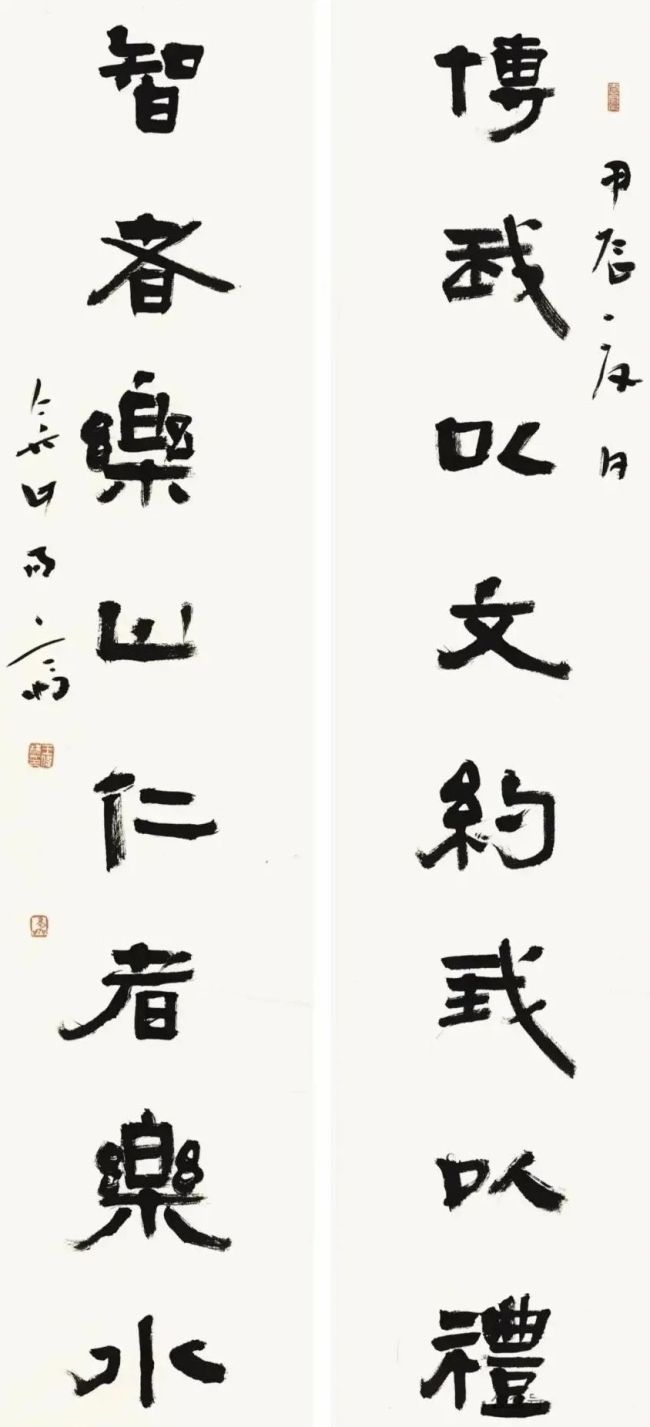 博我以文約我以禮
甲辰夏日
智者樂山仁者樂水